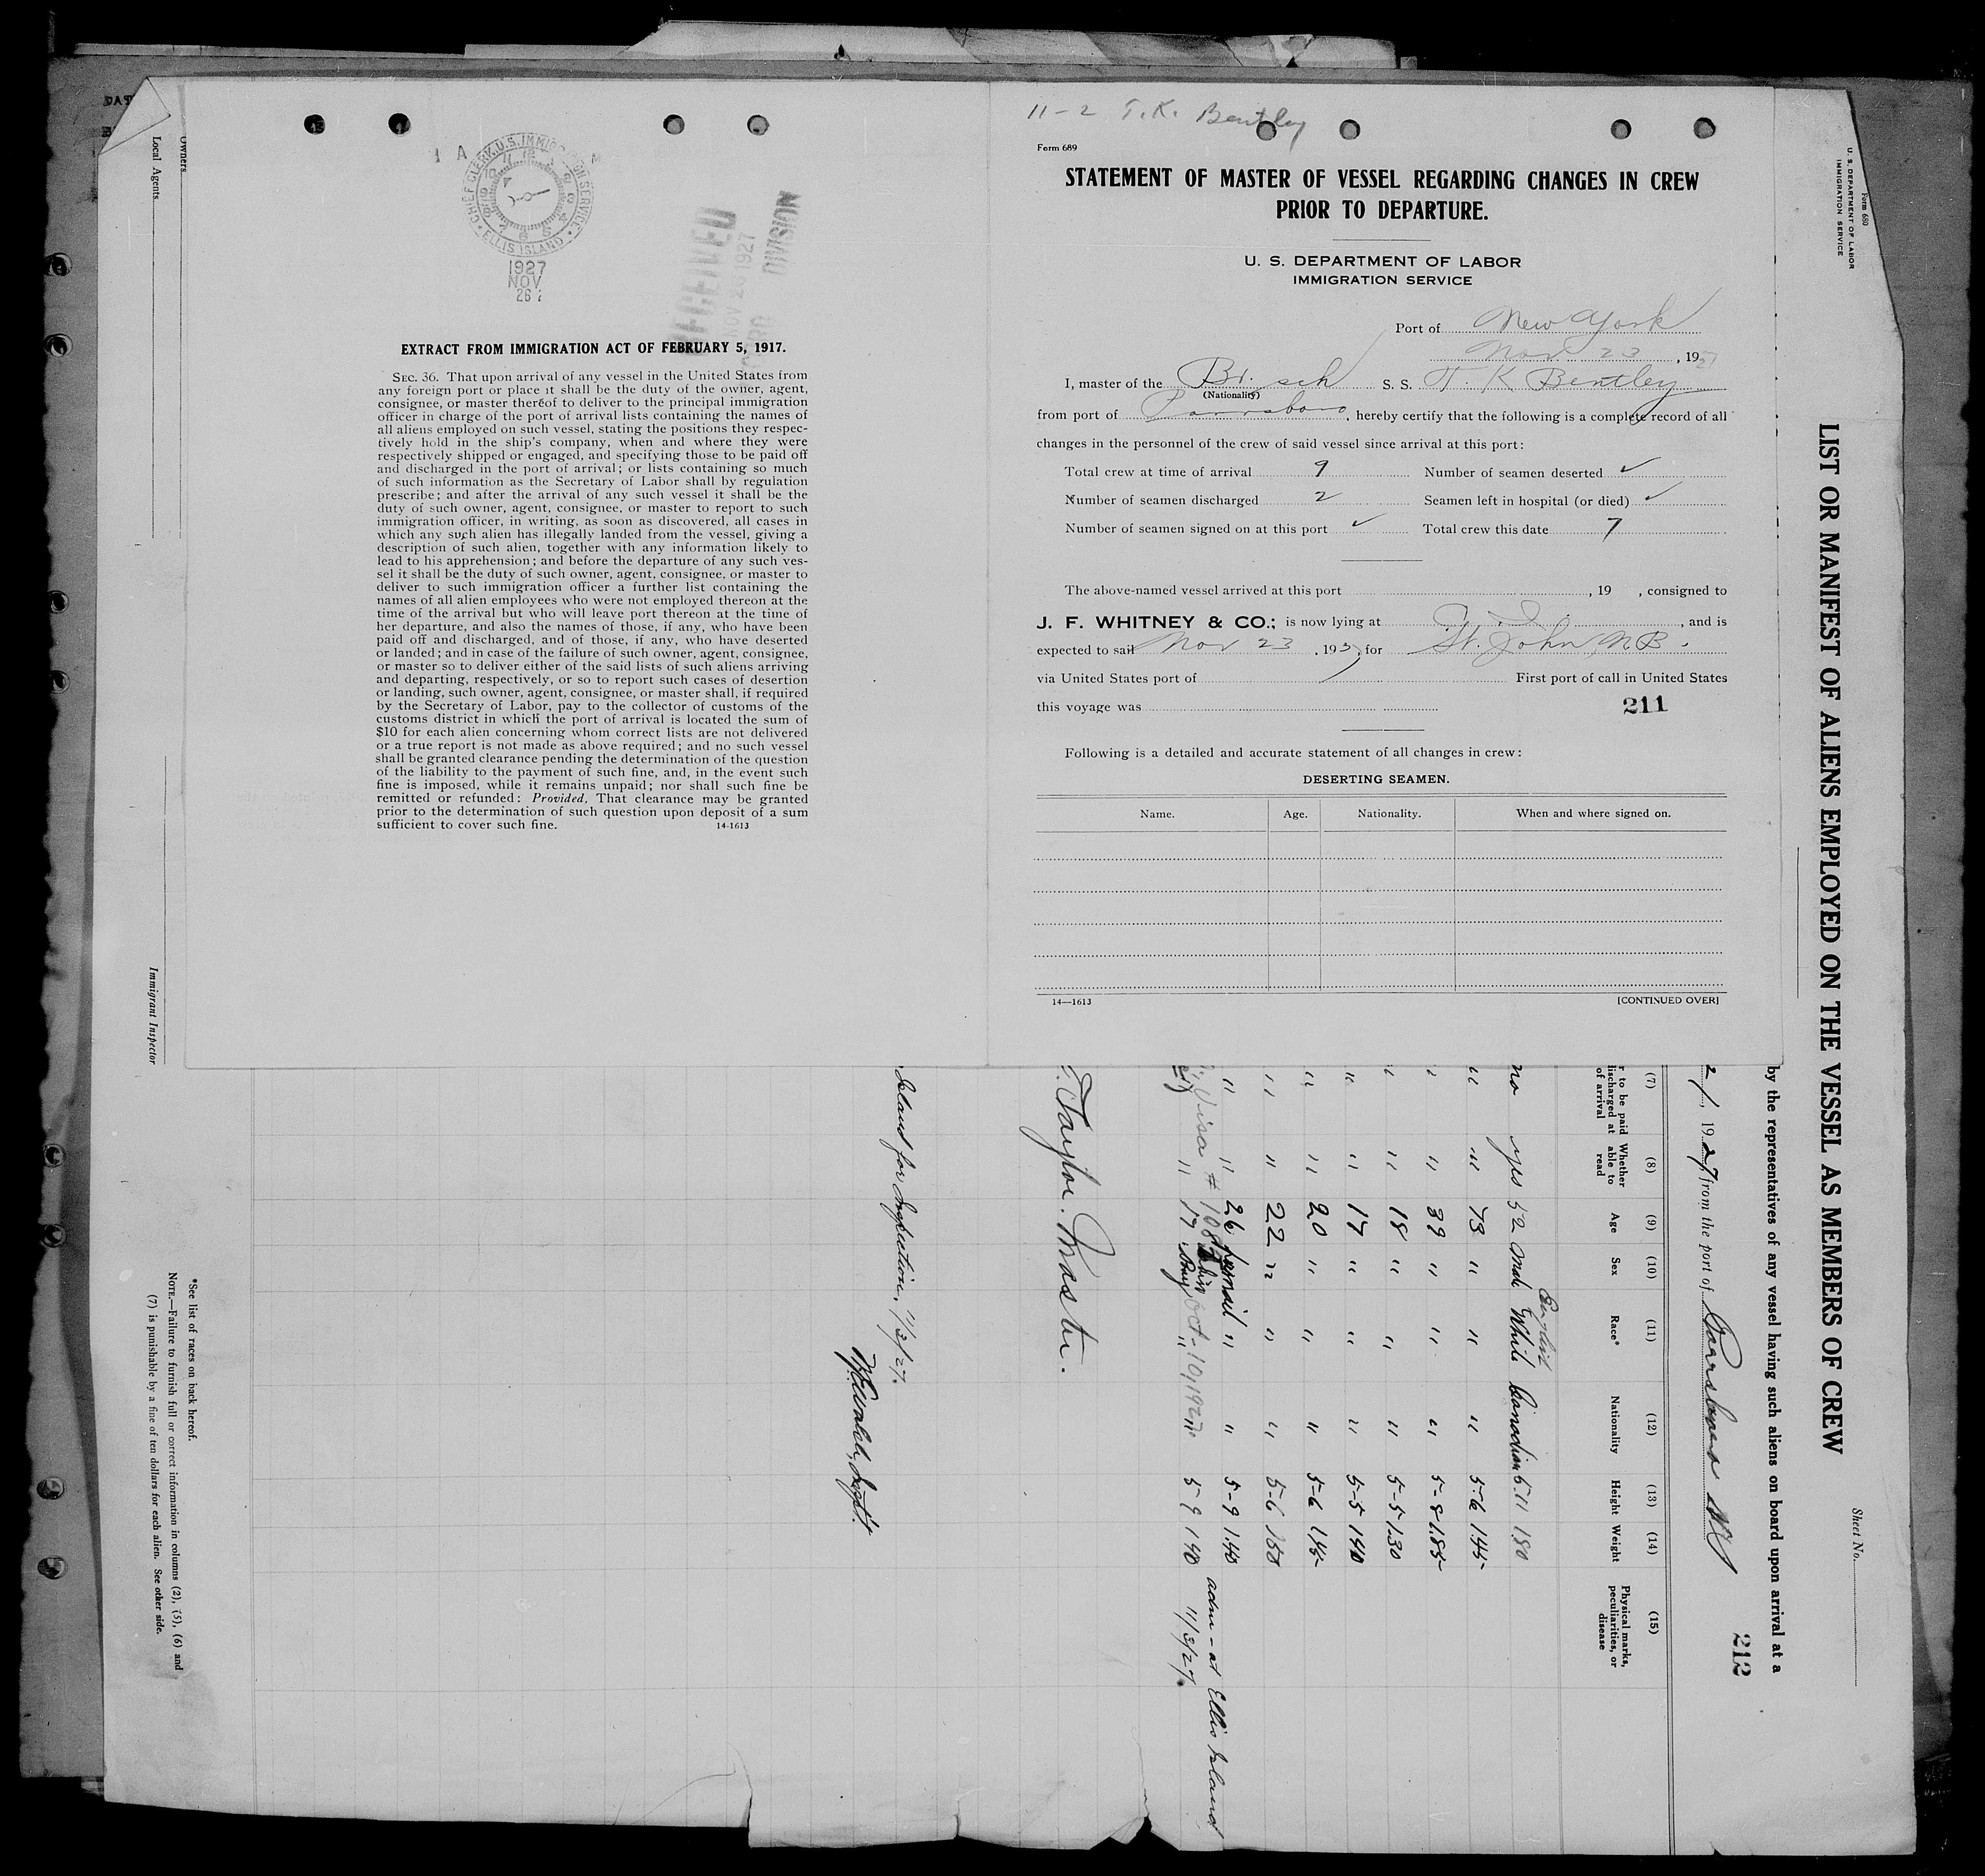 11-2 T. K. Bentley
Form 689
STATEMENT OF MASTER OF VESSEL REGARDING CHANGES IN CREW
PRIOR TO DEPARTURE.
U. S. DEPARTMENT OF LABOR
IMMIGRATION SERVICE
Port of New York
Nov 23, 1927
I, master of the Br. sch S. S. T. K Bentley
(Nationality)
from port of Parrsboro, hereby certify that the following is a complete record of all
changes in the personnel of the crew of said vessel since arrival at this port:
Total crew at time of arrival 9 Number of seamen deserted ✓
Number of seamen discharged 2 Seamen left in hospital (or died) ✓
Number of seamen signed on at this port ✓ Total crew this date 7
The above-named vessel arrived at this port , 19 , consigned to
J. F. WHITNEY & CO.; is now lying at , and is
expected to sail Nov 23 , 19 , for St. John N B.
via United States port of First port of call in United States
this voyage was
211
Following is a detailed and accurate statement of all changes in crew:
DESERTING SEAMEN.
Name. Age. Nationality. When and where signed on.
14—1613 [CONTINUED OVER]
CHIEF CLERK, U.S. IMMIGRATION SERVICE
ELLIS ISLAND
1927
NOV
26
RECEIVED
NOV 26 1927
DIVISION
EXTRACT FROM IMMIGRATION ACT OF FEBRUARY 5, 1917.
SEC. 36. That upon arrival of any vessel in the United States from
any foreign port or place it shall be the duty of the owner, agent,
consignee, or master thereof to deliver to the principal immigration
officer in charge of the port of arrival lists containing the names of
all aliens employed on such vessel, stating the positions they respec-
tively hold in the ship's company, when and where they were
respectively shipped or engaged, and specifying those to be paid off
and discharged in the port of arrival; or lists containing so much
of such information as the Secretary of Labor shall by regulation
prescribe; and after the arrival of any such vessel it shall be the
duty of such owner, agent, consignee, or master to report to such
immigration officer, in writing, as soon as discovered, all cases in
which any such alien has illegally landed from the vessel, giving a
description of such alien, together with any information likely to
lead to his apprehension; and before the departure of any such ves-
sel it shall be the duty of such owner, agent, consignee, or master to
deliver to such immigration officer a further list containing the
names of all alien employees who were not employed thereon at the
time of the arrival but who will leave port thereon at the time of
her departure, and also the names of those, if any, who have been
paid off and discharged, and of those, if any, who have deserted
or landed; and in case of the failure of such owner, agent, consignee,
or master so to deliver either of the said lists of such aliens arriving
and departing, respectively, or so to report such cases of desertion
or landing, such owner, agent, consignee, or master shall, if required
by the Secretary of Labor, pay to the collector of customs of the
customs district in which the port of arrival is located the sum of
$10 for each alien concerning whom correct lists are not delivered
or a true report is not made as above required; and no such vessel
shall be granted clearance pending the determination of the question
of the liability to the payment of such fine, and, in the event such
fine is imposed, while it remains unpaid; nor shall such fine be
remitted or refunded: Provided, That clearance may be granted
prior to the determination of such question upon deposit of a sum
sufficient to cover such fine. 14-1613
Form 680
U. S. DEPARTMENT OF LABOR
IMMIGRATION SERVICE
Sheet No.
LIST OR MANIFEST OF ALIENS EMPLOYED ON THE VESSEL AS MEMBERS OF CREW
by the representatives of any vessel having such aliens on board upon arrival at a
212
21, 1927, from the port of Parrsboro NS
(7) (8) (9) (10) (11) (12) (13) (14) (15)
r to be paid
discharged at
of arrival
Whether
able to
read
Age
Sex
Race*
Nationality
Height
Weight
Physical marks,
peculiarities, or
disease
English
no yes 52 Male White Canadian 5-11 180
" " 73 " " " 5-6 145
" " 39 " " " 5-8 185
" " 18 " " " 5-5 130
" " 17 " " " 5-5 140
" " 20 " " " 5-6 145
" " 22 " " " 5-6 150
" " 26 femail " " 5-9 140
Visa # Oct-10, 1927
" 17 " " 5-9 140
adm-at Ellis Island
11/3/27.
Taylor. Master.
Island for Inspection, 11/3/27.
Owners
Local Agents
Immigrant Inspector
*See list of races on back hereof.
NOTE.—Failure to furnish full or correct information in columns (2), (5), (6) and
(7) is punishable by a fine of ten dollars for each alien. See other side.